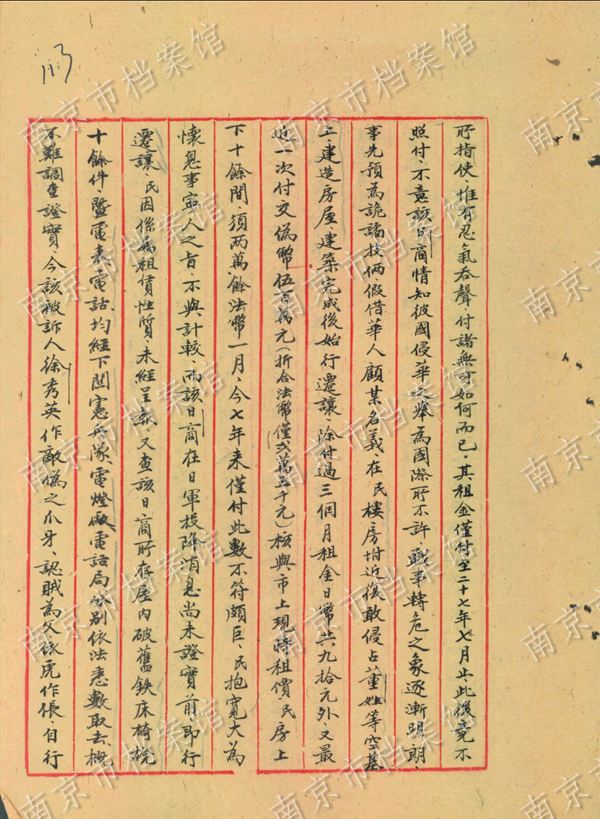 113
所指使、惟有忍氣吞聲付諸無可如何而已、其租金僅付至二十七年七月止、此後竟不
照付、不意該日商情知彼國侵華之舉為國際所不許、戰事轉危之象逐漸明朗、
事先預為詭譎技倆假借華人顧某名義、在民樓房坿近復敢侵占董姓等空基
上建造房屋、建築完成後始行遷讓、除付過三個月租金日幣共九拾元外、又最
近一次付交偽幣伍百萬元（折合法幣僅弍萬五千元）核與市上現時租價、民房上
下十餘間、須兩萬餘法幣一月、今七年來僅付此數不符頗巨、民抱寬大為
懷息事寧人之旨、不與計較、而該日商在日軍投降消息尚未證實前、即行
遷讓、民因係屬租賃性質、未經呈報、又查該日商所存屋內破舊鉄床椅櫈
十餘件、暨電表、電話、均經下関憲兵隊、電燈廠、電話局分別依法悉數取去、概
不難調查證實、今該被訴人徐秀英作敵偽之爪牙、認賊為父、孩虎作倀、自行
南京市档案馆
南京市档案馆
南京市档案馆
南京市档案馆
南京市档案馆
南京市档案馆
南京市档案馆
南京市档案馆
南京市档案馆